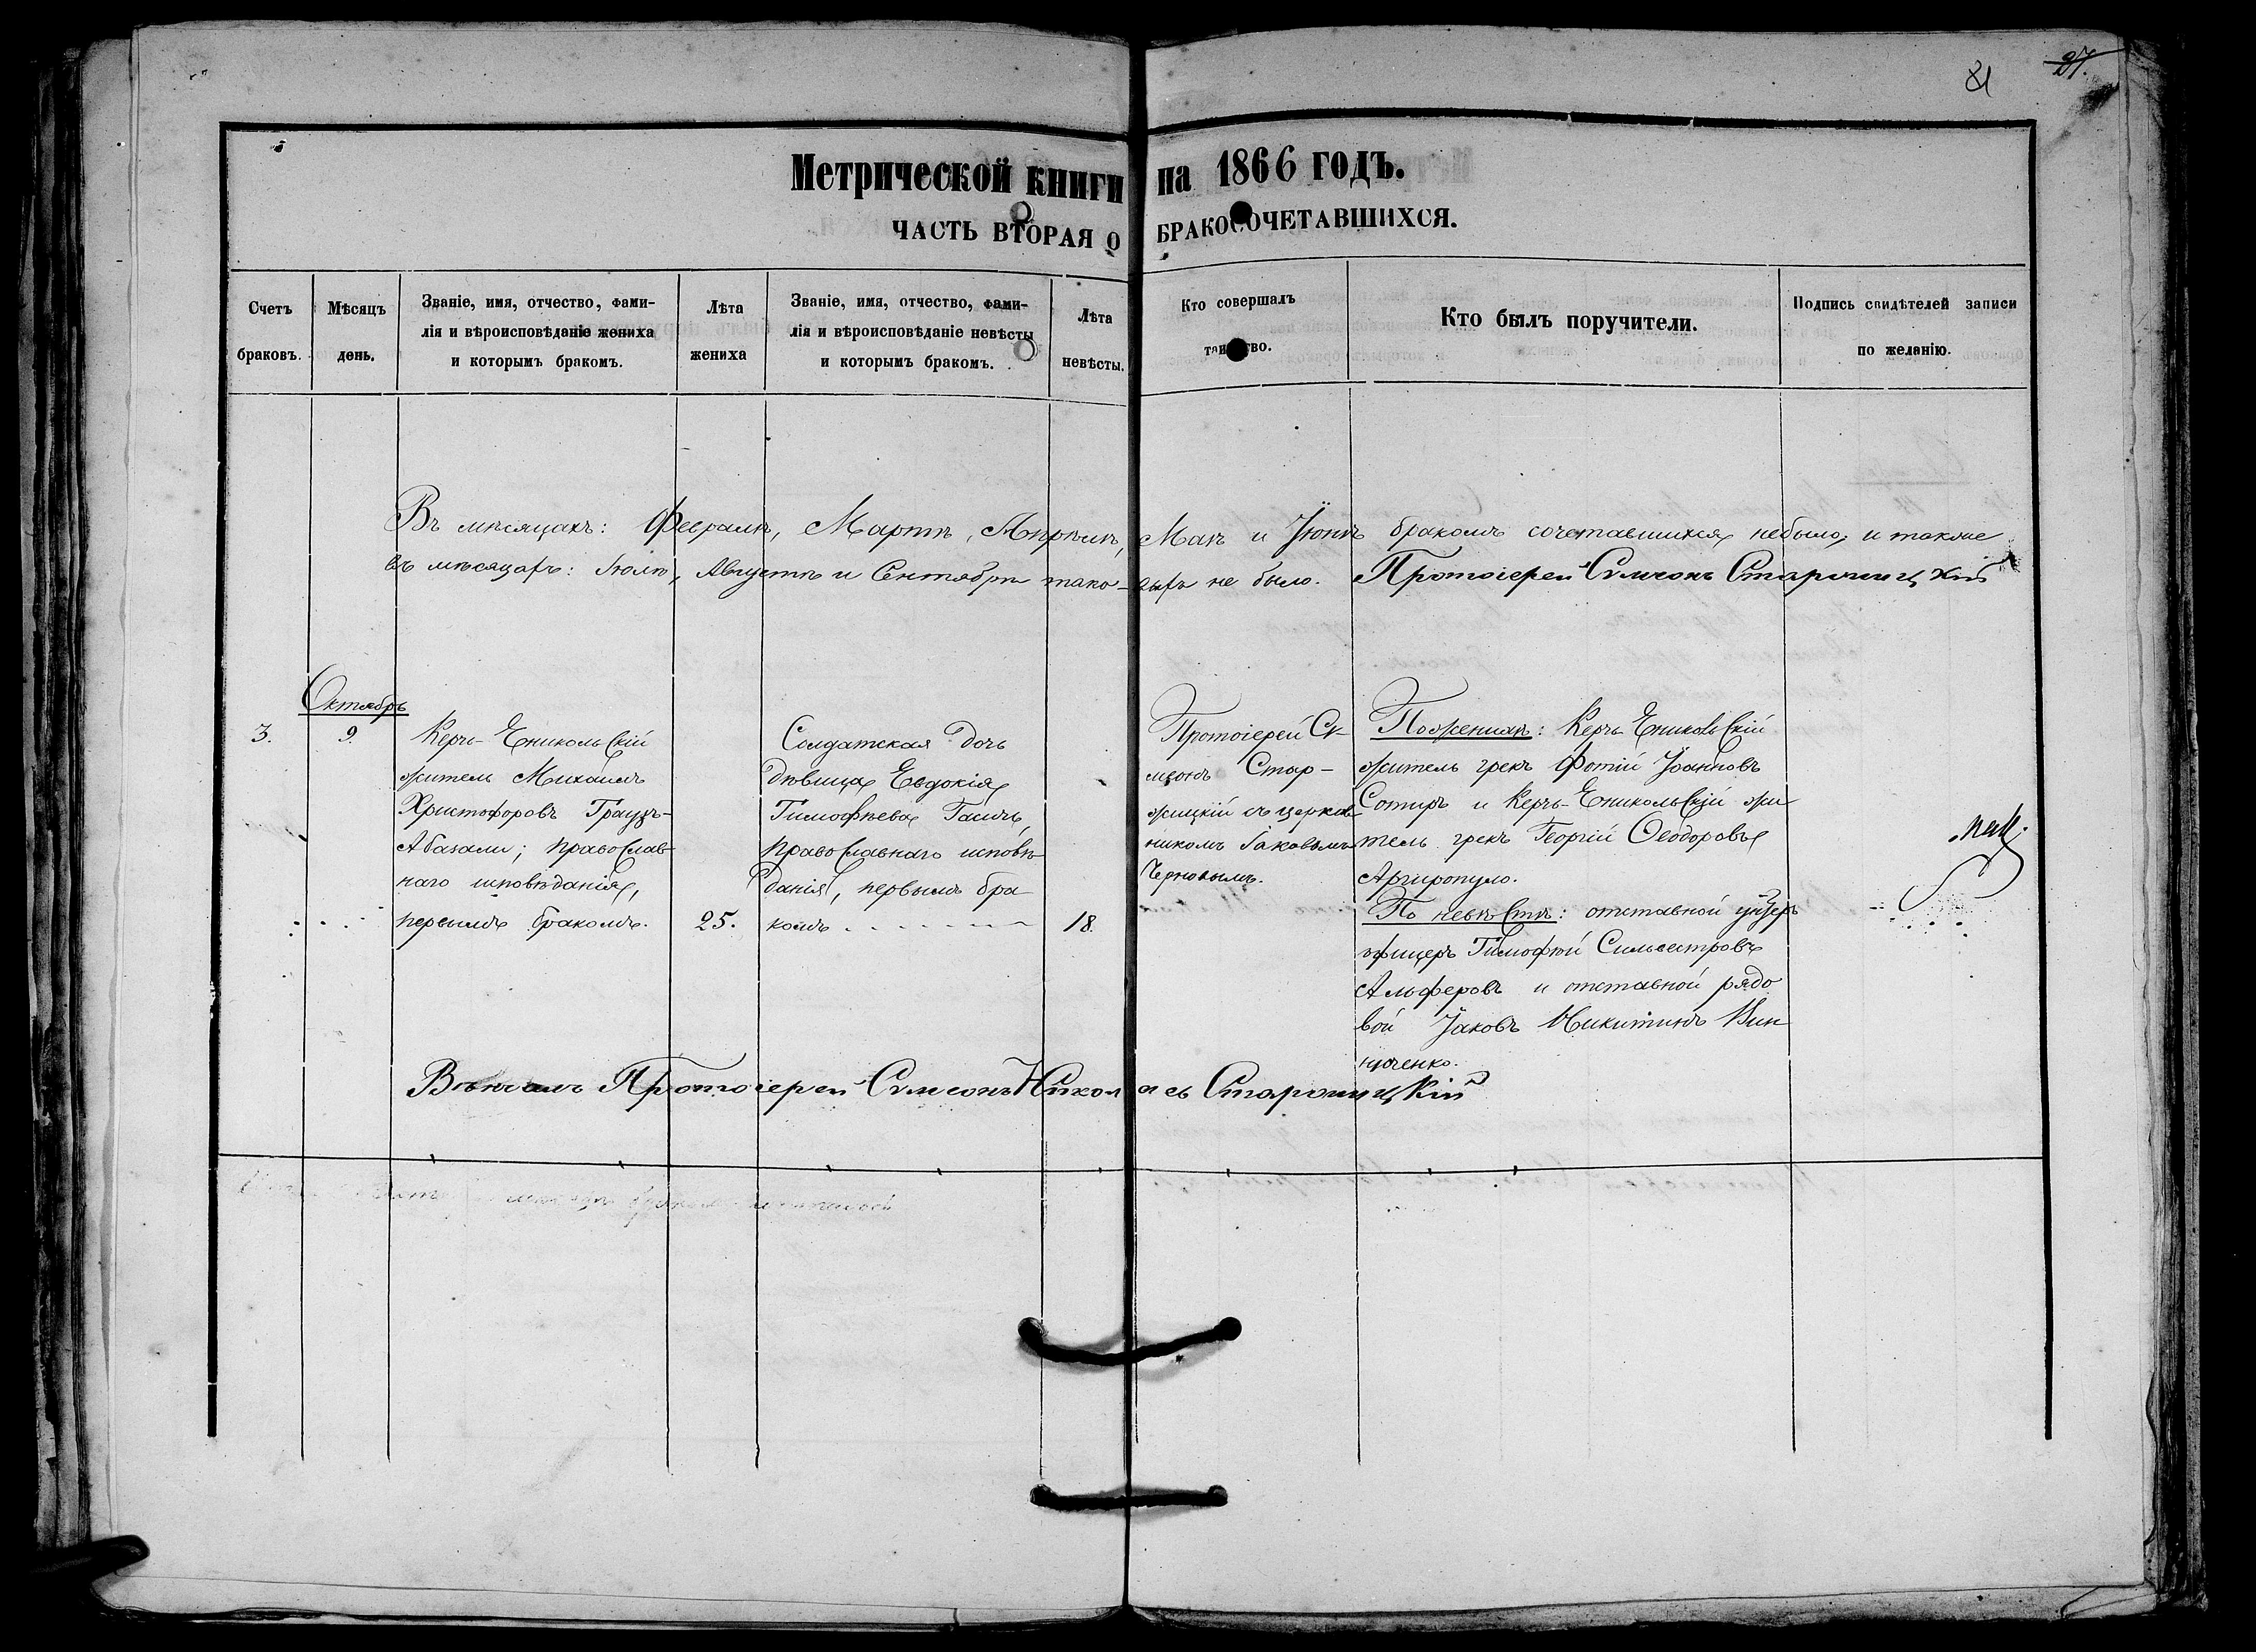 27.
Метрической книги на 1866 годъ.
ЧАСТЬ ВТОРАЯ О БРАКОСОЧЕТАВШИХСЯ.
Счетъ браковъ.
Мѣсяцъ день.
Званіе, имя, отчество, фами-
лія и вѣроисповѣданіе жениха
и которымъ бракомъ.
Лѣта жениха
Званіе, имя, отчество, фами-
лія и вѣроисповѣданіе невѣсты
и которымъ бракомъ.
Лѣта невѣсты.
Кто совершалъ
таинство.
Кто былъ поручители.
Подпись свидѣтелей записи
по желанію.
Въ мѣсяцахъ: Февралѣ, Мартѣ, Апрѣлѣ, Маѣ и Іюнѣ бракомъ сочетавшихся небыло, и также
въ мѣсяцахъ: Іюлѣ, Августѣ и Сентябрѣ тако-выхъ не было. Протоіерей Сѵмеонъ
Октябрь
3.
9.
Керчь-Еникольскій
житель Михаилъ
Христофоровъ
Абазали; православ-
наго исповѣданія,
первымъ бракомъ.
25.
Солдатская дочь
дѣвица Евдокія
Тимофѣева
православнаго исповѣ-
данія, первымъ бра
комъ
18.
Протоіерей Сѵ-
меонъ Стар-
жицкій съ церков-
никомъ Іаковымъ
Черновымъ.
По женихѣ: Керчь Еникольскій
житель грекъ Фотій Іоанновъ
Сотиръ и Керчь-Еникольскій жи
тель грекъ Георгій Ѳеодоровъ
Аргиропуло.
По невѣстѣ: отставной унтеръ
офицеръ Тимофѣй Сильвестровъ
Алферовъ и отставной рядо
вой Яковъ Никитинъ Вин
ниченко.
Вѣнчалъ Протоіерей Сѵмеонъ Николаевъ